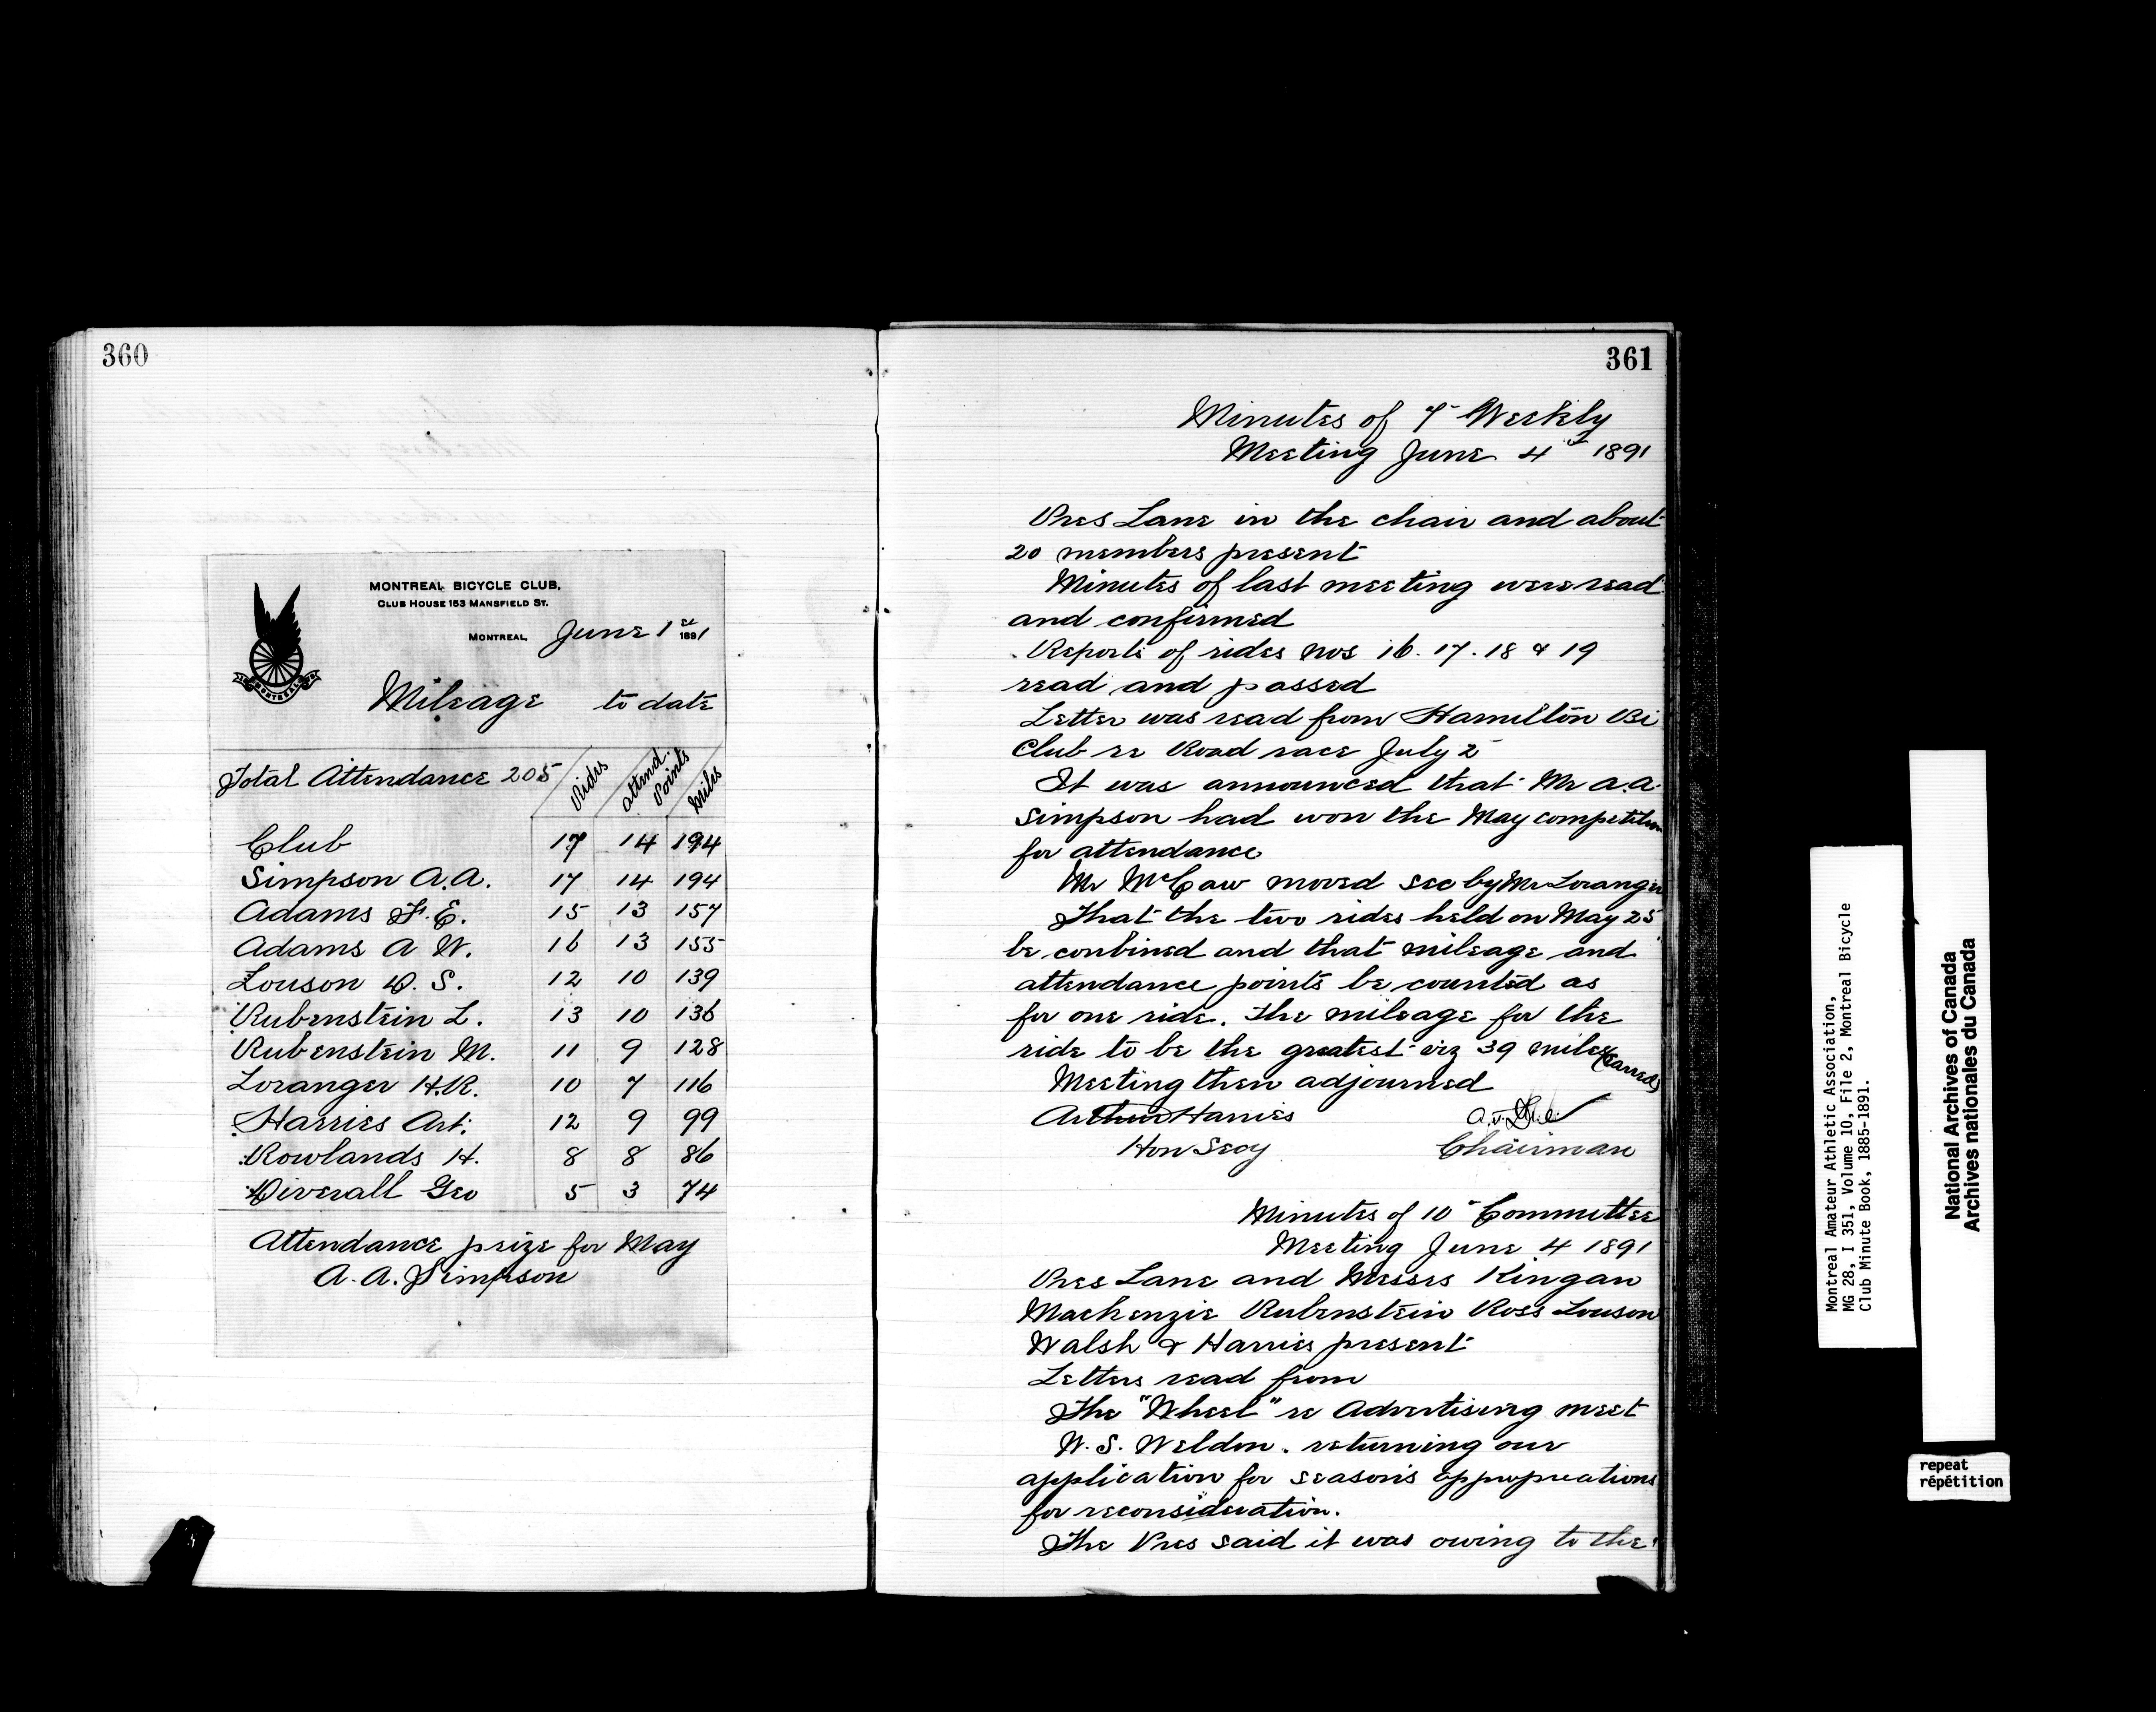 360
MONTREAL BICYCLE CLUB,
CLUB HOUSE 153 MANSFIELD ST.
MONTREAL, June 1st 1891
MONTREAL
Mileage to date
Total Attendance 205 Rides attend. Points Miles
Club 17 14 194
Simpson A.A. 17 14 194
Adams F. E. 15 13 157
Adams A W. 16 13 155
Louson D. S. 12 10 139
Rubenstein L. 13 10 136
Rubenstein M. 11 9 128
Loranger H.R. 10 7 116
Harries Art: 12 9 99
Rowlands H. 8 8 86
Diverall Geo 5 3 74
Attendance prize for May
A. A. Simpson
361
Minutes of Weekly
Meeting June 4 1891
Pres Lane in the chair and about
20 members present
Minutes of last meeting were read
and confirmed
Reports of rides nos 16. 17. 18 & 19
read and passed
Letter was read from Hamilton Bi
Club re Road race July 2
It was announced that Mr A.A.
Simpson had won the May competition
for attendance
Mr McCaw moved sec by Mr Loranger
That the two rides held on May 25
be conbined and that mileage and
attendance points be counted as
for one ride. The mileage for the
ride to be the greatest viz 39 miles (Carried)
Meeting then adjourned
Arthur Harries
Hon Secy Chairman
Minutes of 10 Committee
Meeting June 4 1891
Pres Lane and Messrs Kingan
Mackenzie Rubenstein Ross Louson
Walsh & Harries present
Letters read from
The "Wheel" re Advertising meet
W. S. Weldon. returning our
application for season's appropriations
for reconsideration.
The Pres said it was owing to the
Montreal Amateur Athletic Association,
MG 28, I 351, Volume 10, File 2, Montreal Bicycle
Club Minute Book, 1885-1891.
National Archives of Canada
Archives nationales du Canada
repeat
répétition